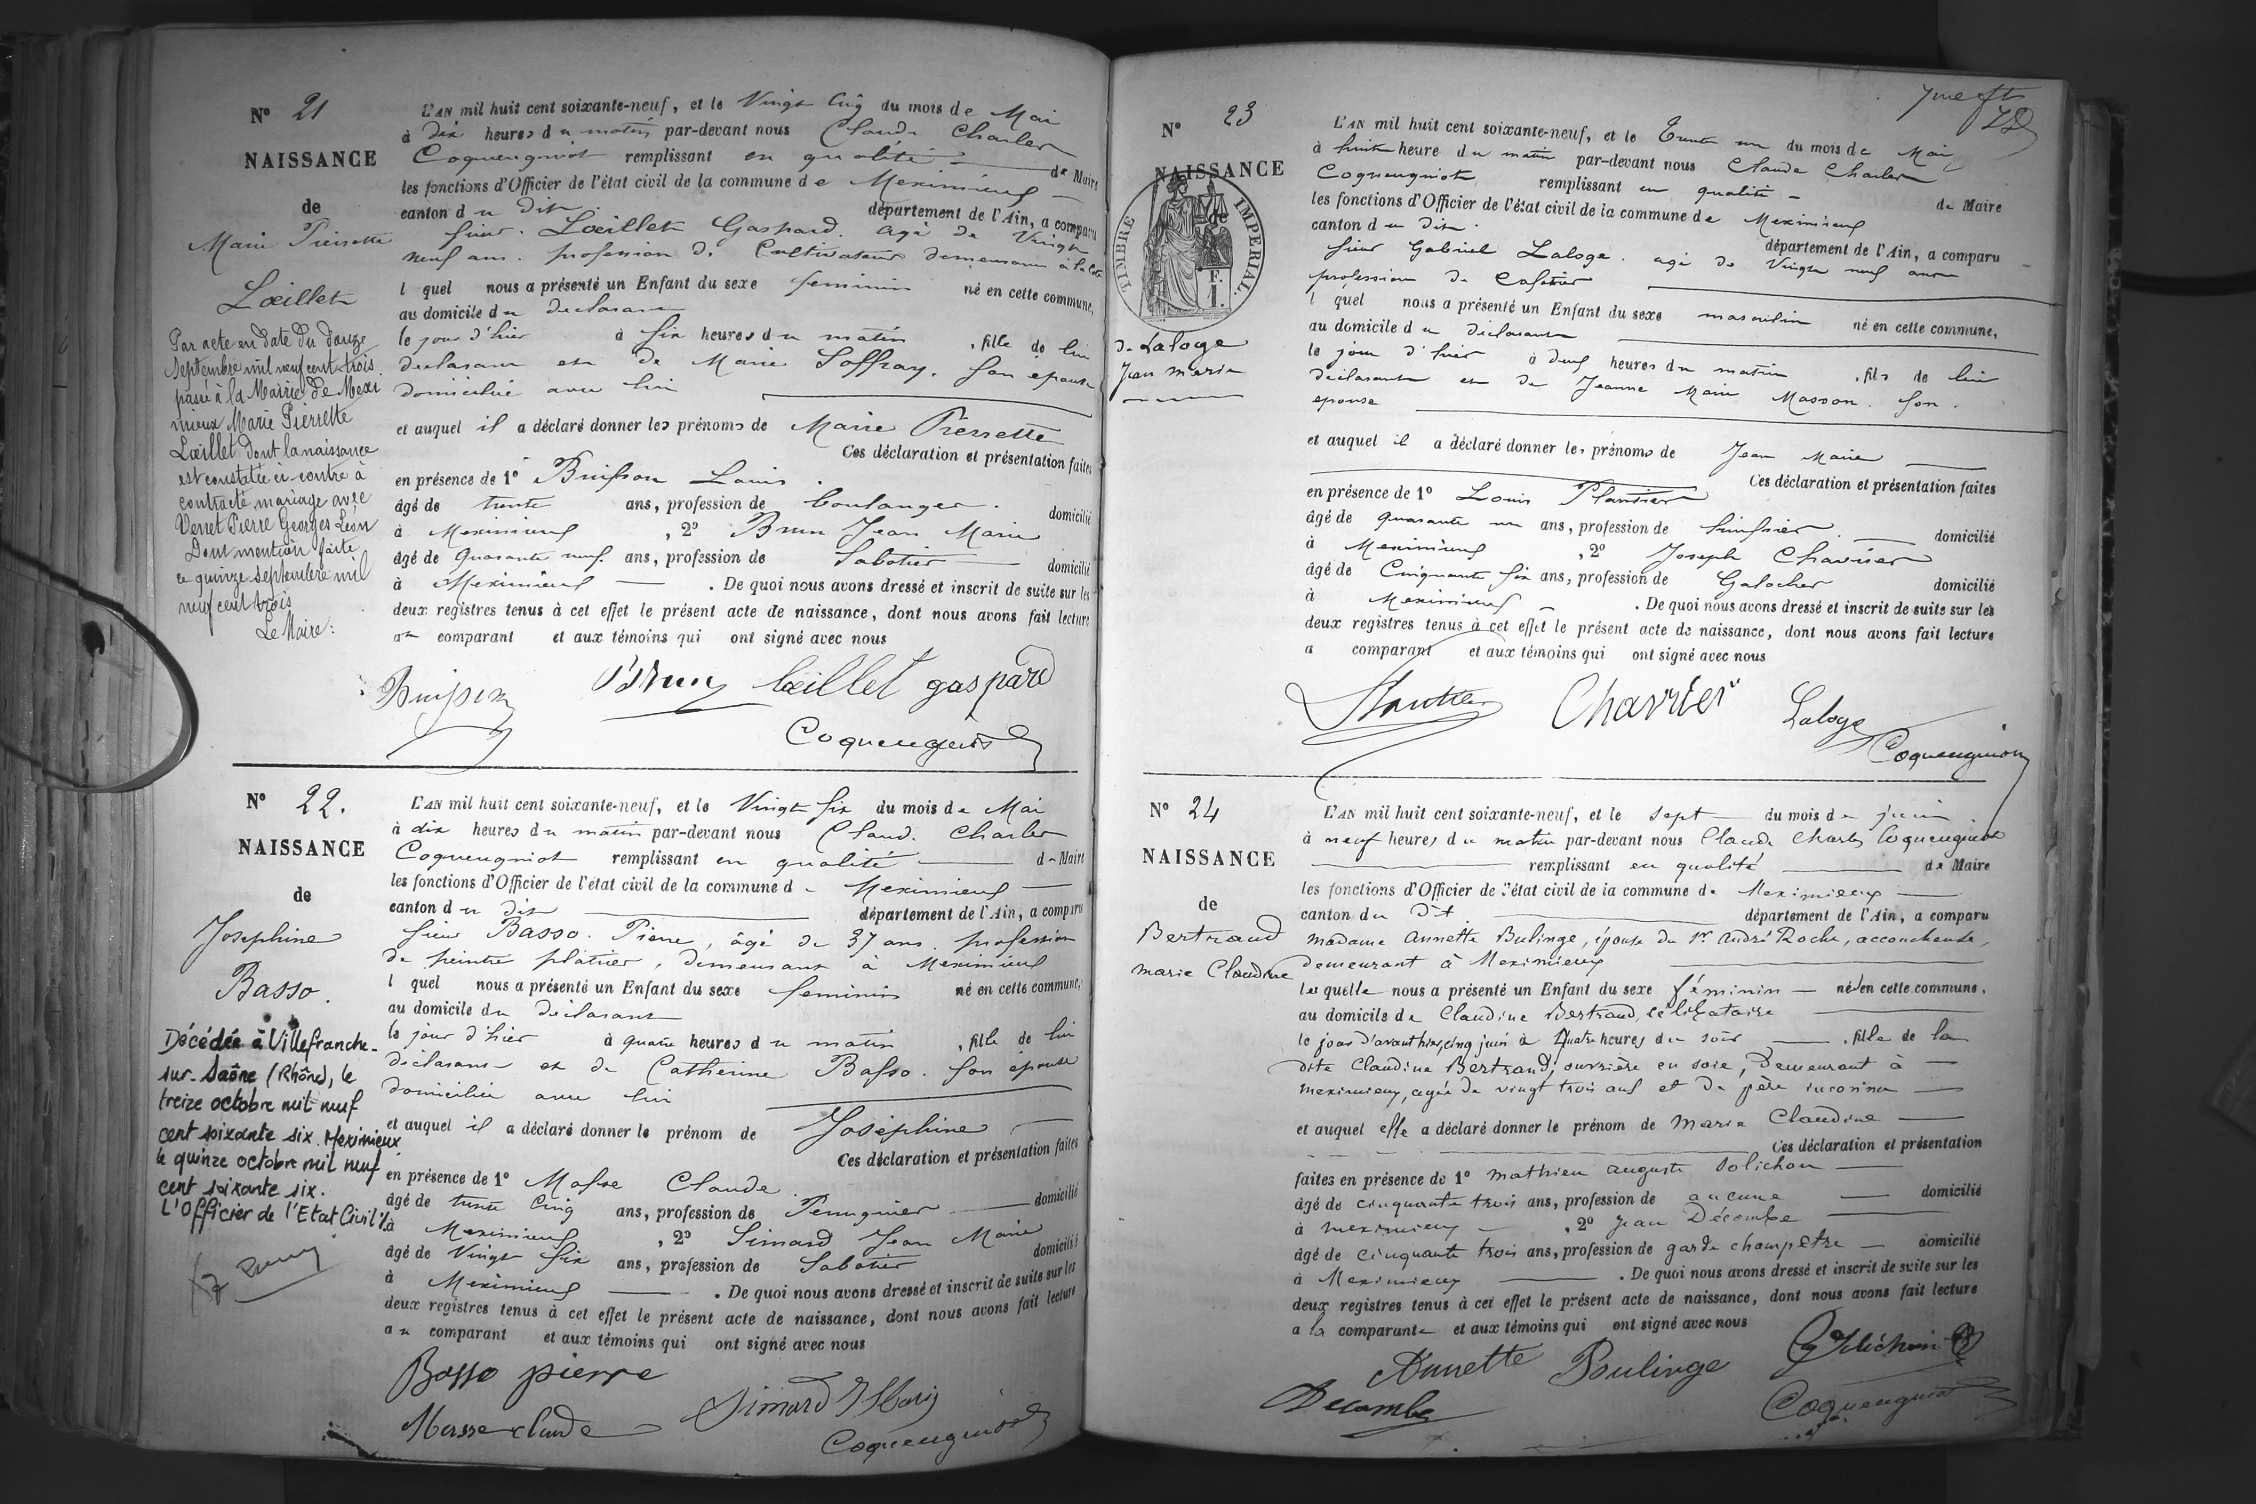 N° 21
NAISSANCE
de
Marie Pierrette
Lœillet
Par acte en date du douze
septembre mil neuf cent trois
passé à la Mairie de Mexi
mieux Marie Pierrette
Lœillet dont la naissance
est constatée ci-contre à
contracté mariage avec
Venet Pierre Georges Léon
Dont mention faite
ce quinze septembre mil
neuf cent trois
Le Maire:
L'AN mil huit cent soixante-neuf, et le Vingt Cinq du mois de Mai
à dix heures du matin par-devant nous Claude Charles
Coquengniot remplissant en qualité de Maire
les fonctions d'Officier de l'état civil de la commune de Meximieux
canton du dit département de l'Ain, a comparu
sieur Lœillet Gaspard. agé de Vingt
neuf ans. profession de Cultivateur demeurant à la
l quel nous a présenté un Enfant du sexe feminin né en cette commune,
au domicile du declarant
le jour d'hier à six heures du matin , fille de lui
declarant et de Marie Soffray. son épouse
domiciliée avec lui
et auquel il a déclaré donner les prénoms de Marie Pierrette
Ces déclaration et présentation faites
en présence de 1° Buisson Louis
âgé de trente ans, profession de boulanger. domicilié
à Meximieux , 2° Brun Jean Marie
âgé de quarante neuf. ans, profession de Sabotier domicilié
à Meximieux . De quoi nous avons dressé et inscrit de suite sur les
deux registres tenus à cet effet le présent acte de naissance, dont nous avons fait lecture
au comparant et aux témoins qui ont signé avec nous
Buisson Brun lœillet gaspard
Coquengniot
N° 22.
NAISSANCE
de
Josephine
Basso.
Décédée à Villefranche-
sur-Saône (Rhône), le
treize octobre mil neuf
cent soixante six. Meximieux
le quinze octobre mil neuf
cent soixante six.
L'Officier de l'Etat Civil
L'AN mil huit cent soixante-neuf, et le Vingt six du mois de Mai
à dix heures du matin par-devant nous Claude Charles
Coquengniot remplissant en qualité de Maire
les fonctions d'Officier de l'état civil de la commune de Meximieux
canton du dit département de l'Ain, a comparu
sieur Basso. Pierre, âgé de 37 ans. profession
de peintre plâtrier, demeurant à Meximieux
l quel nous a présenté un Enfant du sexe feminin né en cette commune,
au domicile du déclarant
le jour d'hier à quatre heures du matin , fille de lui
déclarant et de Catherine Basso. son épouse
domiciliée avec lui
et auquel il a déclaré donner le prénom de Joséphine
Ces déclaration et présentation faites
en présence de 1° Masse Claude
âgé de trente Cinq ans, profession de Perruquier domicilié
à Meximieux , 2° Simard Jean Marie
âgé de Vingt six ans, profession de Sabotier domicilié
à Meximieux . De quoi nous avons dressé et inscrit de suite sur les
deux registres tenus à cet effet le présent acte de naissance, dont nous avons fait lecture
au comparant et aux témoins qui ont signé avec nous
Basso pierre
Masse claude Simard J Mari
Coquengniot
N° 23
NAISSANCE
de
TIMBRE IMPERIAL
F.
1.
de Laloge
Jean Marie
L'AN mil huit cent soixante-neuf, et le Trente un du mois de Mai
à huit heure du matin par-devant nous Claude Charles
Coquengniot remplissant en qualité de Maire
les fonctions d'Officier de l'état civil de la commune de Meximieux
canton du dit. département de l'Ain, a comparu
sieur Gabriel Laloge. agé de Vingt neuf ans
profession de Cafetier
l quel nous a présenté un Enfant du sexe masculin né en cette commune,
au domicile du déclarant
le jour d'hier à deux heures du matin , fils de lui
déclarant et de Jeanne Marie Masson. son.
epouse
et auquel il a déclaré donner les prénoms de Jean Marie
Ces déclaration et présentation faites
en présence de 1° Louis
âgé de quarante un ans, profession de huissier. domicilié
à Meximieux , 2° Joseph Charvier
âgé de Cinquante six ans, profession de Galocher domicilié
à Meximieux . De quoi nous avons dressé et inscrit de suite sur les
deux registres tenus à cet effet le présent acte de naissance, dont nous avons fait lecture
a comparant et aux témoins qui ont signé avec nous
Charvier Laloge
Coquengniot
N° 24
NAISSANCE
de
Bertraud
marie Claudine
L'AN mil huit cent soixante-neuf, et le sept du mois de juin
à neuf heures du matin par-devant nous Claude Charles Coquengniot
remplissant en qualité de Maire
les fonctions d'Officier de l'état civil de la commune de Meximieux
canton du dit département de l'Ain, a comparu
madame annette Bulinge, épouse du Sr André Roche, accoucheuse,
demeurant à Meximieux
laquelle nous a présenté un Enfant du sexe féminin né en cette commune,
au domicile de Claudine Bertraud, célibataire
le jour d'avant hier, cinq juin à quatre heures du soir , fille de la
dite Claudine Bertraud, ouvrière en soie, demeurant à
meximieux, agée de vingt trois ans et de père inconnu
et auquel elle a déclaré donner le prénom de marie Claudine
Ces déclaration et présentation
faites en présence de 1° mathieu auguste Solichon
âgé de cinquante trois ans, profession de aucune domicilié
à meximieux , 2° Jean Décombe
âgé de cinquante trois ans, profession de garde champêtre domicilié
à Meximieux . De quoi nous avons dressé et inscrit de suite sur les
deux registres tenus à cet effet le présent acte de naissance, dont nous avons fait lecture
a la comparante et aux témoins qui ont signé avec nous
Annette Boulinge
Decombe Coquengniot